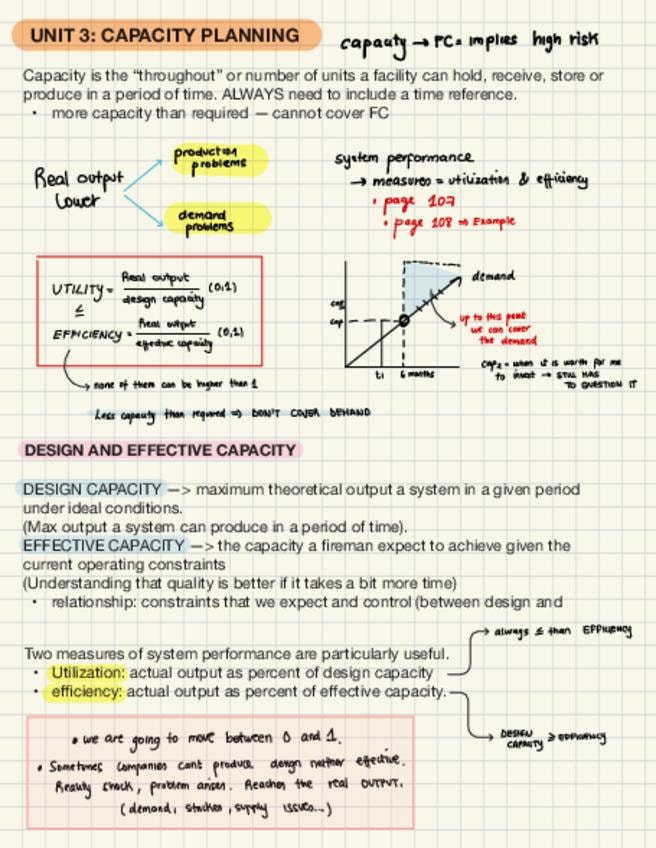 UNIT 3: CAPACITY PLANNING
capacity → FC = implies high risk
Capacity is the “throughout” or number of units a facility can hold, receive, store or
produce in a period of time. ALWAYS need to include a time reference.
• more capacity than required — cannot cover FC
Real output
lower
production
problems
demand
problems
system performance
→ measures = utilization & efficiency
• page 107
• page 108 ⇒ Example
UTILITY = Real output / design capacity (0,1)
≤
EFFICIENCY = Real output / effective capacity (0,1)
→ none of them can be higher than 1
Less capacity than required ⇒ DON'T COVER DEMAND
demand
cap₂
cap
t₁
6 months
up to this point
we can cover
the demand
cap₂ = when it is worth for me
to invest → STILL HAS
TO QUESTION IT
DESIGN AND EFFECTIVE CAPACITY
DESIGN CAPACITY —> maximum theoretical output a system in a given period
under ideal conditions.
(Max output a system can produce in a period of time).
EFFECTIVE CAPACITY —> the capacity a fireman expect to achieve given the
current operating constraints
(Understanding that quality is better if it takes a bit more time)
• relationship: constraints that we expect and control (between design and
Two measures of system performance are particularly useful.
• Utilization: actual output as percent of design capacity
→ always ≤ than EFFICIENCY
• efficiency: actual output as percent of effective capacity.
→ DESIGN
CAPACITY ≥ EFFICIENCY
• we are going to move between 0 and 1.
• Sometimes companies cant produce design neither effective.
Reality check, problem arises. Reaches the real OUTPUT.
(demand, stocks, supply issues...)